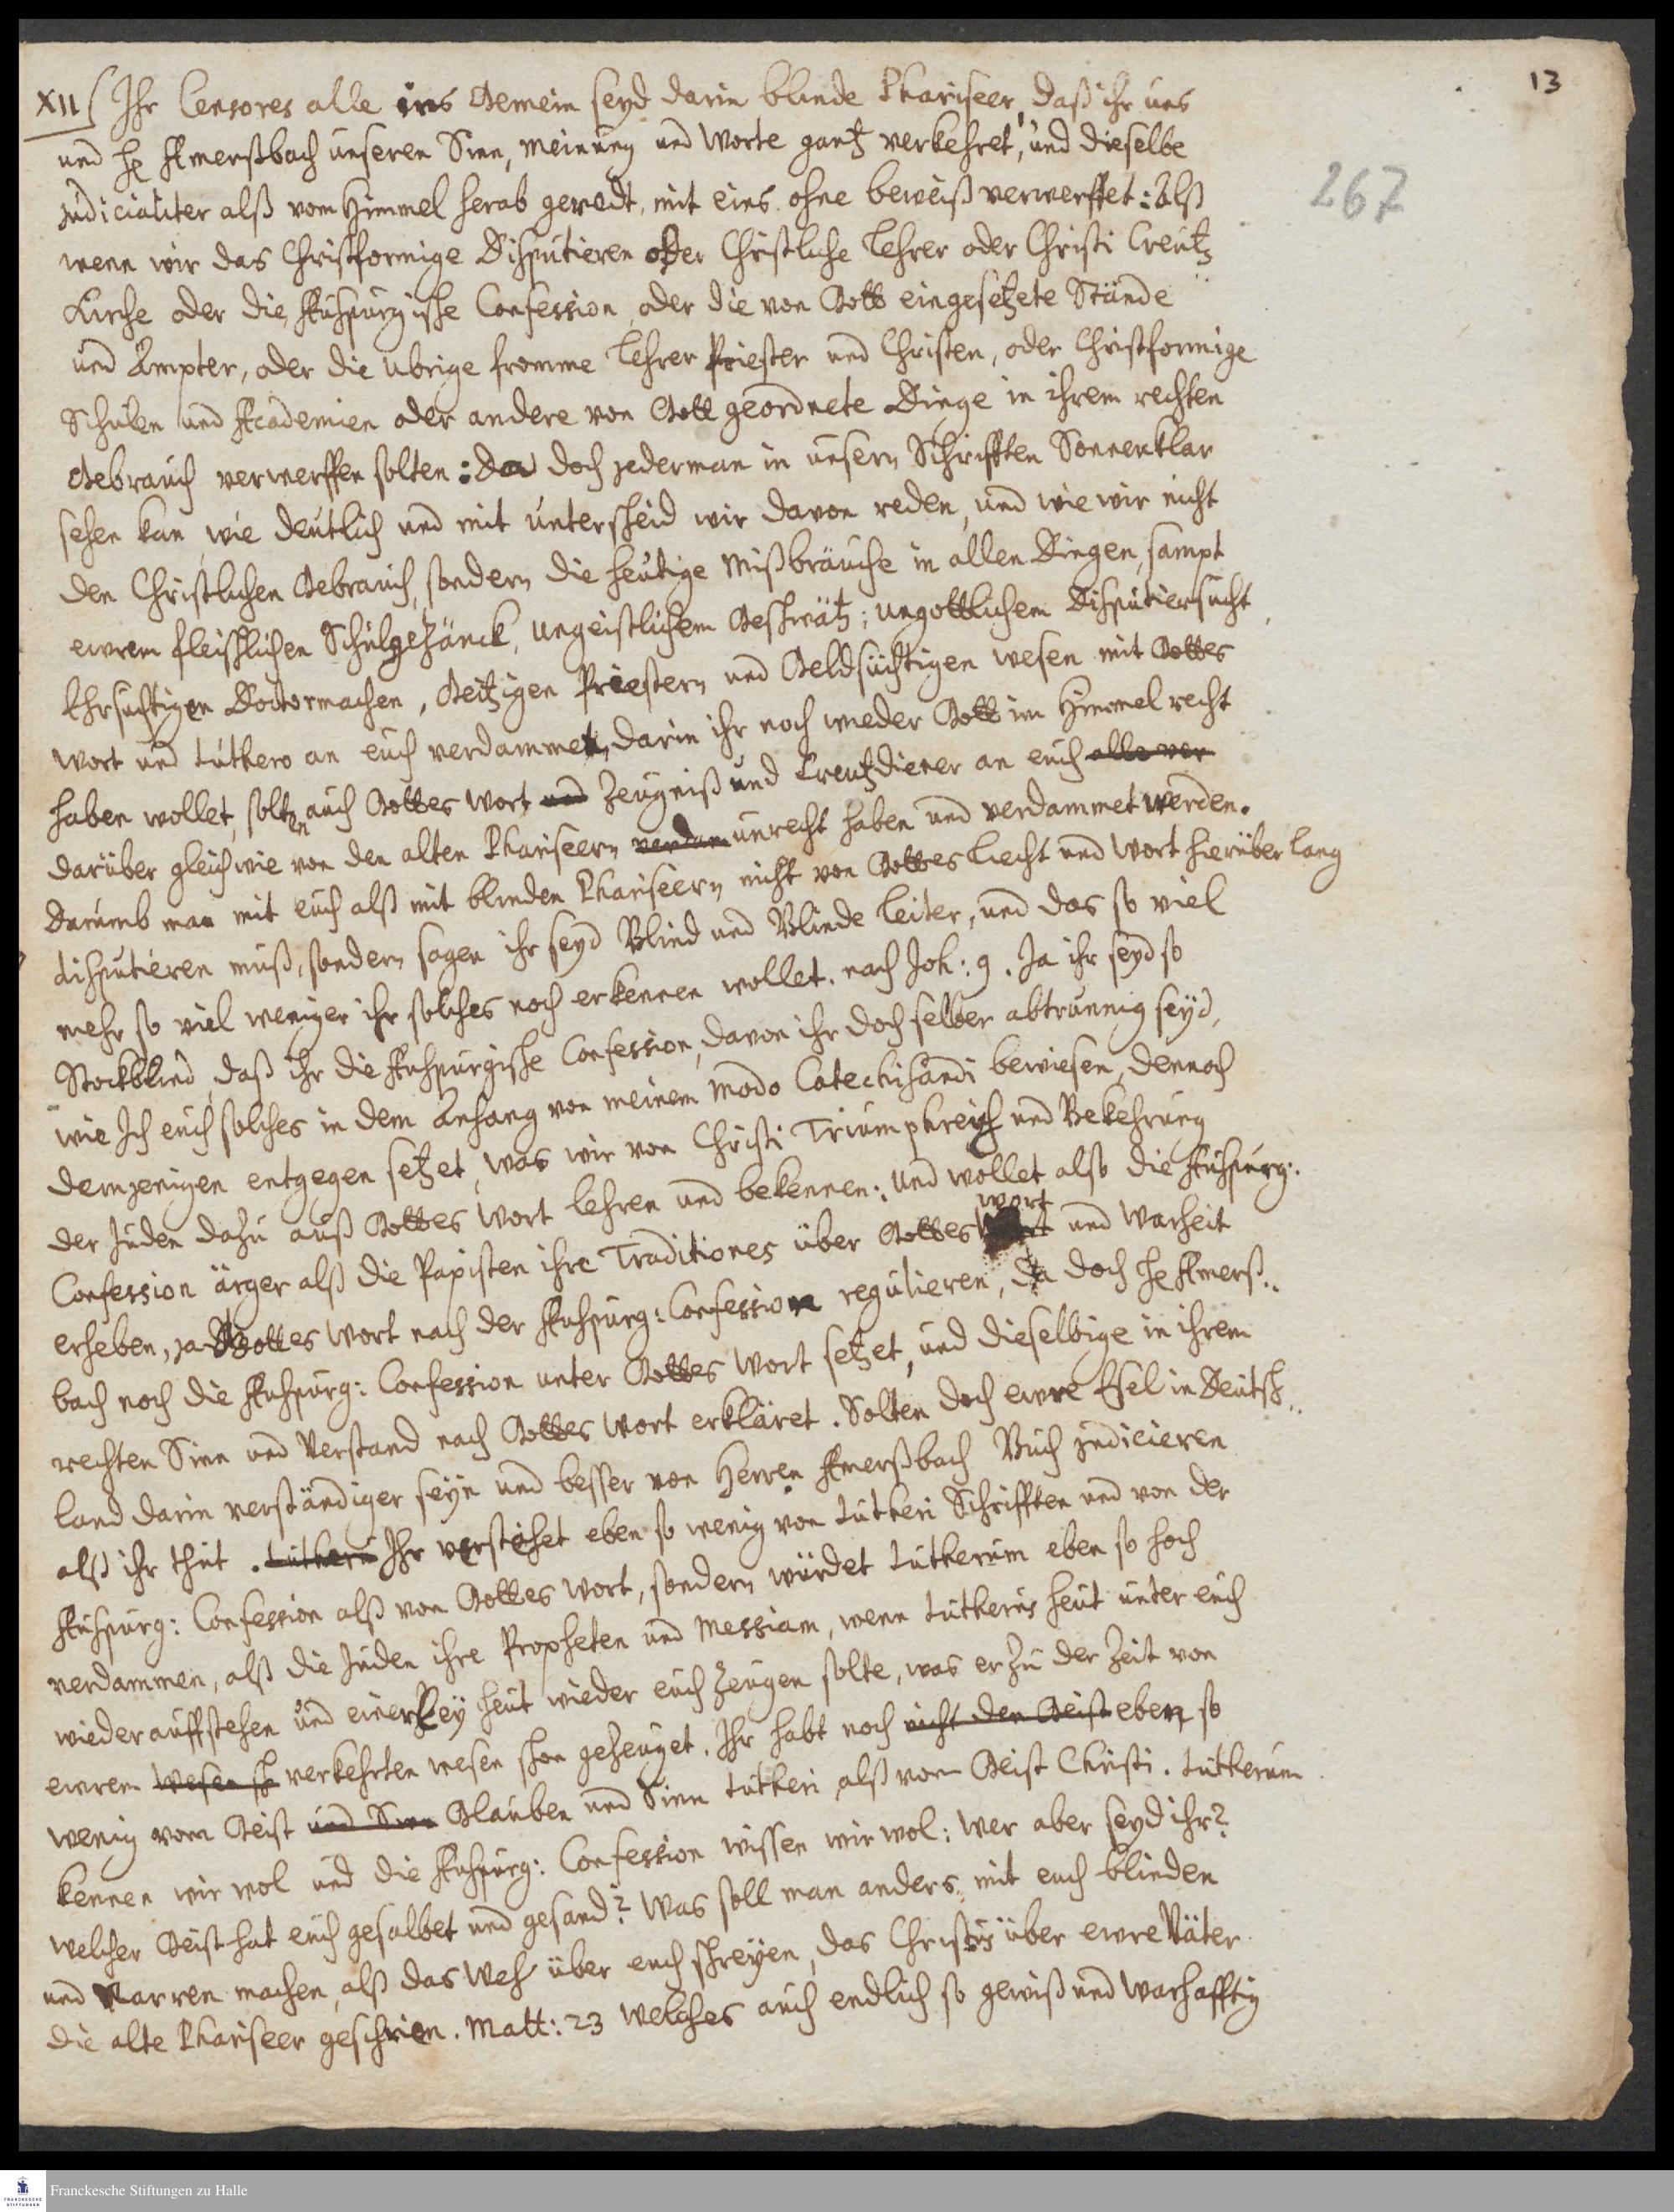 13
267
XII Ihr Censores alle ins Gemein seyd darin blinde Phariseer, daß ihr uns
und H Amerßbach unseren Sinn, meinung und Worte gantz verkehret, und dieselbe
judicialiter alß vom Himmel herab geredt, mit eins ohne beweiß verwerffet: Alß
wenn wir das Christformige Disputieren oder Christliche Lehrer oder Christi Creutz
Kirche oder die Außpurgische Confession, oder die von Gott eingesetzete Stände
und Ämpter, oder die ubrige fromme Lehrer Priester und Christen, oder Christformige
Schulen und Academien oder andere von Gott geordnete Dinge in ihrem rechten
Gebrauch verwerffen solten: Da doch jederman in unsern Schrifften Sonnenklar
sehen kan, wie deutlich und mit unterscheid wir davon reden, und wie wir nicht
den Christlichen Gebrauch, sondern die heutige Mißbräuche in allen Dingen, sampt
ewrem fleischlichen Schulgezänck, ungeistlichem Geschwätz; ungottlichem Disputiersucht,
Ehrsuchtigen Doctormachen, Geitzigen Priestern und Geldsüchtigen wesen mit Gottes
Wort und Luthero an euch verdammet, darin ihr noch wieder Gott im Himmel recht
haben wollet, solten auch Gottes Wort und Zeugniß und Creutzdiener an euch alle ver
darüber gleich wie von den alten Phariseern verdam unrecht haben und verdammet werden.
Darumb man mit euch alß mit blinden Phariseern nicht von Gottes Liecht und Wort hierüber lang
disputieren muß, sondern sagen ihr seyd Blind und Blinde Leiter, und das so viel
mehr so viel weniger ihr solches noch erkennen wollet. nach Joh: 9. Ja ihr seyd so
Stockblind, daß ihr die Außpurgische Confession, davon ihr doch selber abtrunnig seyd,
wie Ich euch solches in dem Anhang von meinem modo Catechisandi bewiesen, dennoch
demjenigen entgegen setzet, was wir von Christi Triumphreich und Bekehrung
der Juden dazu auß Gottes Wort lehren und bekennen: und wollet also die Außpurg:
Confession ärger alß die Papisten ihre Traditiones über Gottes Wort und Warheit
erheben, ja Gottes Wort nach der Außpurg: Confession regulieren, da doch H Amerß-
bach noch die Außpurg: Confession unter Gottes Wort setzet, und dieselbige in ihrem
rechten Sinn und Verstand nach Gottes Wort erkläret. Solten doch ewre Esel in Deutsch-
land darin verständiger seyn und besser von Herren Amerßbach Buch judicieren
alß ihr thut. Lutheru Ihr verstehet eben so wenig von Lutheri Schrifften und von der
Außpurg: Confession alß von Gottes Wort, sondern würdet Lutherum eben so hoch
verdammen, alß die Juden ihre Propheten und Messiam, wenn Lutherus heut unter euch
wieder aufstehen und einerley heut wieder euch zeugen solte, was er zu der Zeit von
ewrem wesen sch verkehrten wesen schon gezeuget. Ihr habt noch nicht den Geist eben so
wenig vom Geist und Sinn Glauben und Sinn Lutheri alß vom Geist Christi. Lutherum
kennen wir wol und die Außpurg: Confession wissen wir wol: Wer aber seyd ihr?
Welcher Geist hat euch gesalbet und gesand? Was soll man anders mit euch blinden
und Narren machen, alß das Weh über euch schreyen, das Christus über ewre Väter
die alte Phariseer geschrien. Matt: 23 welches auch endlich so gewiß und warhafftig
Franckesche Stiftungen zu Halle